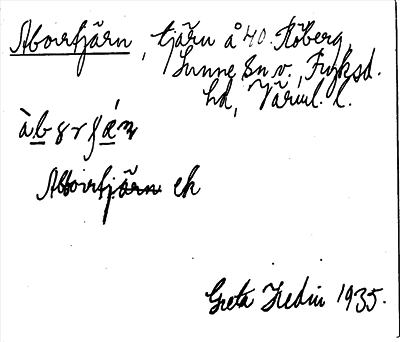 Aborrtjärn, tjärn å 40. Röberg,
Sunne sn. v., Fryksd.
hd, Värml. l.
Abborrtjärn ek
Greta Hedin 1935.